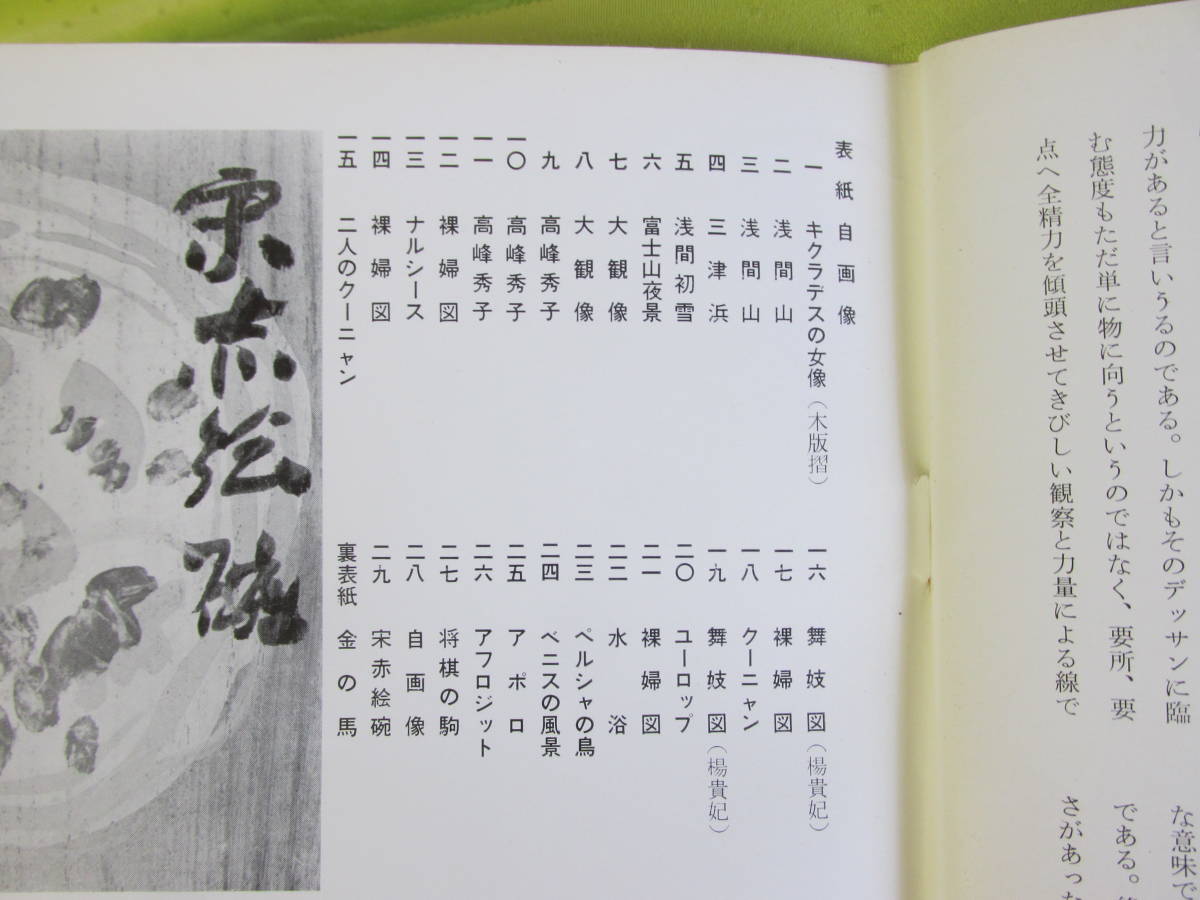 力があると言いうるのである。しかもそのデッサンに臨
む態度もただ単に物に向うというのではなく、要所、要
点へ全精力を傾頭させてきびしい観察と力量による線で
な意味で
である。
さがあった
表紙 自画像
一 キクラデスの女像(木版摺)
二 浅間山
三 浅間山
四 三津浜
五 浅間初雪
六 富士山夜景
七 大観像
八 大観像
九 高峰秀子
一〇 高峰秀子
一一 高峰秀子
一二 裸婦図
一三 ナルシース
一四 裸婦図
一五 二人のクーニャン
一六 舞妓図(楊貴妃)
一七 裸婦図
一八 クーニャン
一九 舞妓図(楊貴妃)
二〇 ユーロップ
二一 裸婦図
二二 水浴
二三 ペルシャの鳥
二四 ベニスの風景
二五 アポロ
二六 アフロジット
二七 将棋の駒
二八 自画像
二九 宋赤絵碗
裏表紙 金の馬
宋赤絵碗